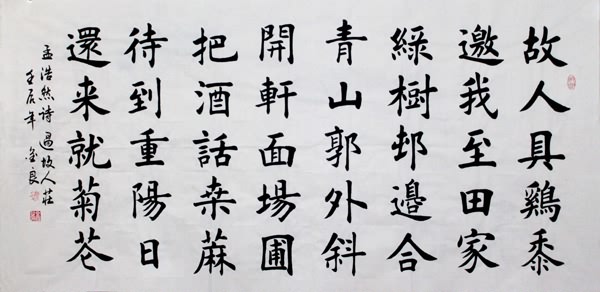 故人具鷄黍
邀我至田家
綠樹邨邊合
青山郭外斜
開軒面場圃
把酒話桒蔴
待到重陽日
還来就菊花
孟浩然詩過故人莊
壬辰年 金良